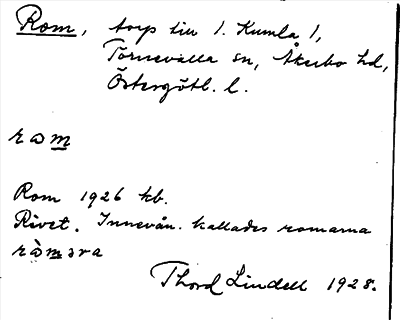 Rom, torp till 1. Kumla 1,
Törnevalla sn, Åkerbo hd,
Östergötl. l.
rɷm
Rom 1926 kb.
Rivet. Innevån. kallades romarna
rɷ̀mȧra
Thord Lindell 1928.